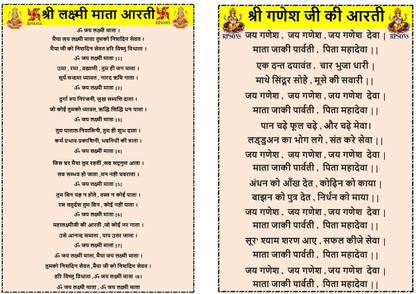 श्री लक्ष्मी माता आरती
RPSONS
RPSONS
ॐ जय लक्ष्मी माता ।
मैया जय लक्ष्मी माता तुमको निशदिन सेवत ।
मैया जी को निशदिन सेवत हरि विष्णु विधाता ।
ॐ जय लक्ष्मी माता ||
उमा , रमा , ब्रह्माणी , तुम ही जग माता ।
सूर्य-चन्द्रमा ध्यावत , नारद ऋषि गाता ।
ॐ जय लक्ष्मी माता |2|
दुर्गा रुप निरंजनी, सुख सम्पत्ति दाता ।
जो कोई तुमको ध्यावत, ऋद्धि सिद्धि धन पाता ।
ॐ जय लक्ष्मी माता |3|
तुम पाताल-निवासिनी, तुम ही शुभ दाता ।
कर्म-प्रभाव-प्रकाशिनी, भवनिधी की त्राता ।
ॐ जय लक्ष्मी माता |4|
जिस घर मैया तुम रहतीं , सब सद्गुण आता ।
सब सम्भव हो जाता , मन नहीं घबराता ।
ॐ जय लक्ष्मी माता |5|
तुम बिन यज्ञ न होते , वस्त्र न कोई पाता ।
रत्न चतुर्दश तुम बिन , कोई नहीं पाता ।
ॐ जय लक्ष्मी माता |6|
महालक्ष्मीजी की आरती ,जो कोई नर गाता ।
उसे आनन्द समाता , पाप उतर जाता ।
ॐ जय लक्ष्मी माता |7|
ॐ जय लक्ष्मी माता ,मैया जय लक्ष्मी माता ।
तुमको निशदिन सेवत ,मैया जी को निशदिन सेवत ।
हरि विष्णु विधाता , ॐ जय लक्ष्मी माता |8|
ॐ जय लक्ष्मी माता , ॐ जय लक्ष्मी माता
श्री गणेश जी की आरती
RPSONS
RPSONS
जय गणेश , जय गणेश ,जय गणेश देवा |
माता जाकी पार्वती , पिता महादेवा ||
एक दन्त दयावंत , चार भुजा धारी |
माथे सिंदूर सोहे , मूसे की सवारी ||
जय गणेश , जय गणेश , जय गणेश देवा |
माता जाकी पार्वती , पिता महादेवा ||
पान चढ़े फूल चढ़े , और चढ़े मेवा।
लड्डुअन का भोग लगे , संत करे सेवा ||
जय गणेश , जय गणेश , जय गणेश देवा |
माता जाकी पार्वती , पिता महादेवा ||
अंधन को आँख देत , कोढ़िन को काया |
बाझन को पुत्र देत , निर्धन को माया ||
जय गणेश , जय गणेश , जय गणेश देवा |
माता जाकी पार्वती , पिता महादेवा ||
सूर' श्याम शरण आए , सफल कीजे सेवा |
माता जाकी पार्वती , पिता महादेवा ||
जय गणेश , जय गणेश , जय गणेश देवा |
माता जाकी पार्वती , पिता महादेवा ||